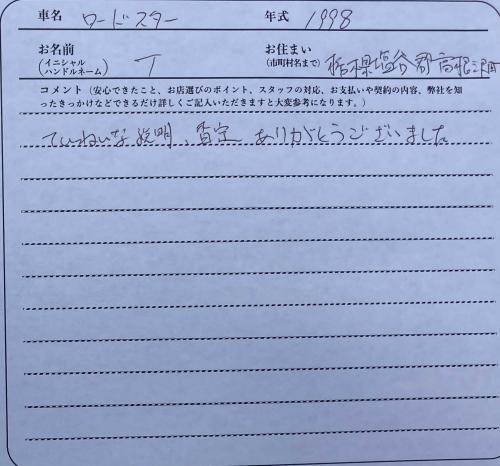 車名 ロードスター 年式 1998
お名前 お住まい
(イニシャル ハンドルネーム) T (市町村名まで) 栃木県塩谷郡高根沢町
コメント (安心できたこと、お店選びのポイント、スタッフの対応、お支払いや契約の内容、弊社を知
ったきっかけなどできるだけ詳しくご記入いただきますと大変参考になります。)
ていねいな説明、査定 ありがとうございました。